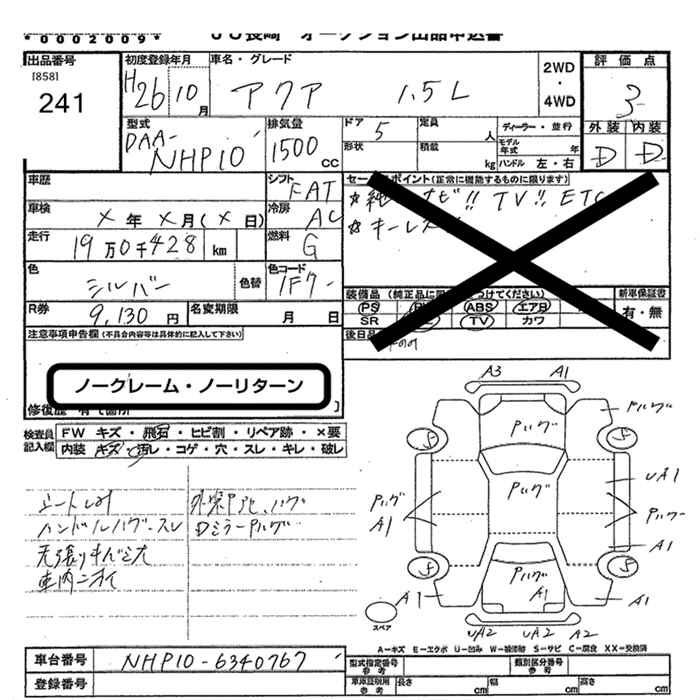 *0002009*
JU長崎 オークション出品申込書
出品番号
[858]
241
初度登録年月
H26 10月
車名・グレード
アクア 1.5L
2WD
・
4WD
評価点
3
外装 内装
D D
型式
DAA-
NHP10
排気量
1500 cc
ドア 5
定員 人
ディーラー・並行
モデル年式 年
形状
積載 kg
ハンドル 左・右
車歴
シフト FAT
セールスポイント(正常に機能するものに限ります)
ナビ!! TV!! ETC
キーレス
車検
× 年 × 月(× 日)
冷房 AC
走行
19万0千428 km
燃料 G
色
シルバー
色替
色コード
1F7
装備品
新車保証書
有・無
PS ABS エアB
SR TV カワ
R券
9,130 円
名変期限
月 日
注意事項申告欄(不具合内容等は具体的に記入して下さい)
ノークレーム・ノーリターン
検査員
記入欄
FW キズ・飛石・ヒビ割・リペア跡・×要
内装 キズ・汚レ・コゲ・穴・スレ・キレ・破レ
ハンドルハグ・スレ
Dミラー Pハゲ
車内ニオイ
A3 A1
Pハゲ
Pハゲ
Pハゲ
Pハゲ
A1
UA1
A1
Pハゲ
A1
A1 A1
UA2 UA2 A2
スペア
A－キズ E－エクボ U－凹み W－補修跡 S－サビ C－腐食 XX－交換済
車台番号
NHP10-6340767
登録番号
型式指定番号
参考
類別区分番号
参考
車庫証明用
参考
長さ cm
幅 cm
高さ cm